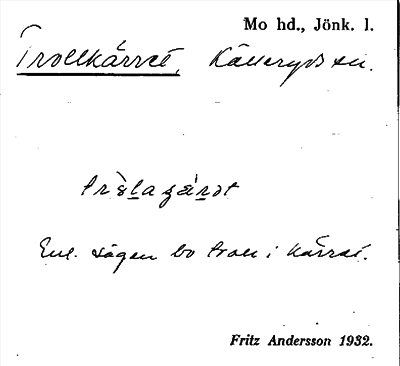 Mo hd., Jönk. l.
Trollkärret, Källeryds sn.
Enl. sägen bo troll i kärret.
Fritz Andersson 1932.